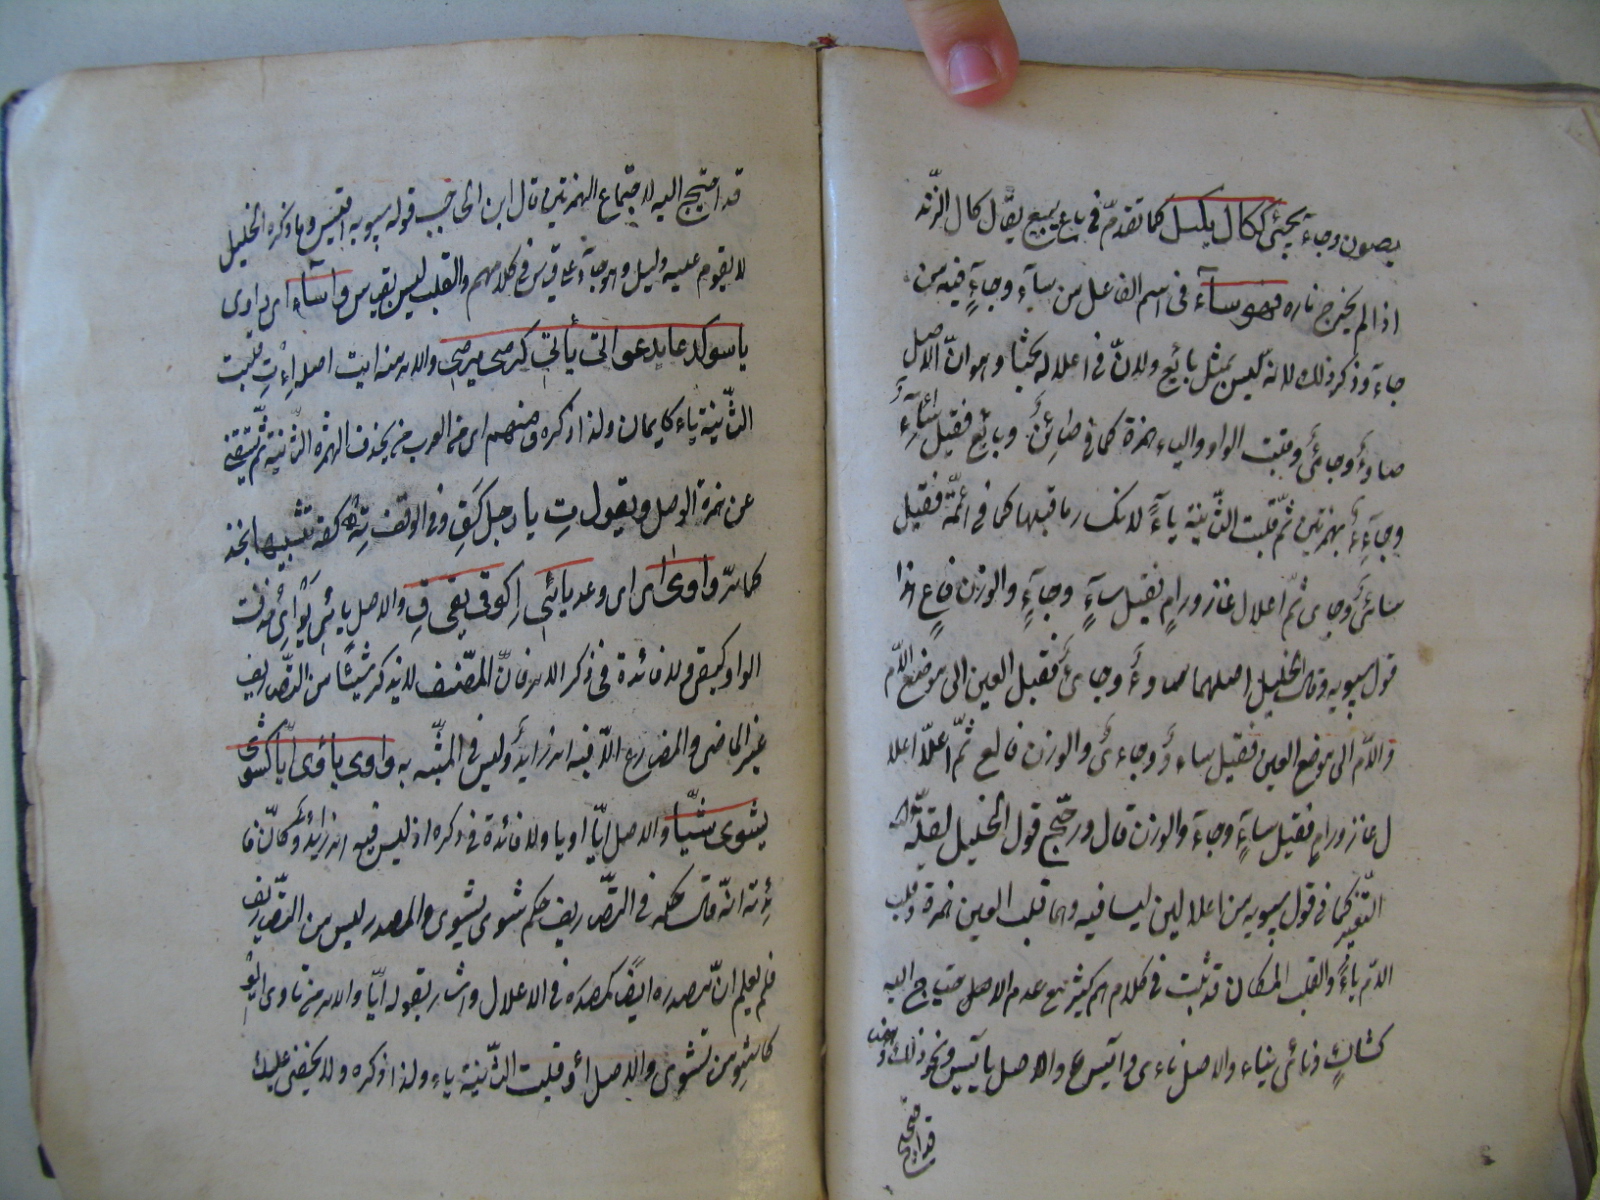 يصون وجاء يجئ ككال يكيل كما تقدم فى باع يبيع يقال كال الزند
اذا لم يخرج ناره فهو ساء فى اسم الفاعل من ساء وجاء فيه من
جاء وذكر ذلك لانه ليس مثل بائع ولان فى اعلاله بحثا وهو ان الاصل
ساوء وجايئ وقلبت الواو والياء همزة كما فى صائن وبائع فقيل ساءء
وجاءء بهمزتين ثم قلبت الثانية ياء لانكسار ما قبلها كما فى ائمة فقيل
سائى وجاى ثم اعلال غاز ورام فقيل ساء وجاء والوزن فاع هذا
قول سيبويه وقال الخليل اصلهما ساوء وجايئ فنقل العين الى موضع اللام
واللام الى موضع العين فقيل ساءو وجاءى والوزن فالع ثم اعلا اعلا
ل غاز ورام فقيل ساء وجاء والوزن قال ورجح قول الخليل لقلة
التغيير كما فى قول سيبويه من اعلالين ليسا فيه وهما قلب العين همزة وقلب
اللام ياء والقلب المكان قد ثبت فى كلامهم كثير مع عدم الاصل محتياج اليه
كشاك وناى يناء والاصل ناءى وايس والاصل يائيس ونحو ذلك
قد احتج
قد احتج اليه لاجتماع الهمزتين قال ابن الحاجب قول سيبويه اقيس وما ذكره الخليل
لا يقوم عليه دليل وهو جاء على قياس فى كلامهم والقلب ليس بقياس واساء اى داوى
ياسو كدعا يدعو اتى يأتى كرمى يرمى والامر منه ايت اصله ائت قلبت
الثانية ياء كايمان ولذا ذكره ومنهم اى من العرب من يحذف الهمزة الثانية ثم يستغنى
عن همزة الوصل ويقول ت يا رجل كق وفى الوقف ته كقه تشبيها بخذ
كما مر واوى اى وعد يائى ا كوقى يقى ق والاصل يائى يوائى حذفت
الواو كيقى ولا فائدة فى ذكر الامر فان المصنف لا يذكر شيئا من التصاريف
غير الماضى والمضارع الا فيه امر زايد وليس فى المشبه به واوى ياوى ايا كشوى
يشوى شيا والاصل ايا اويا ولا فائدة فى ذكره اذ ليس فيه امر زايد وكان فا
ئدته انه قال حكمه فى التصاريف حكم شوى يشوى والمصدر ليس من التصاريف
فلم يعلم ان مصدره ايضا كمصدره فى الاعلال واشار بقوله ايا والامر من تاوى ايو
كاشو من تشوى والاصل ائو قلبت الثانية ياء ولذا ذكره ولا يخفى عليك